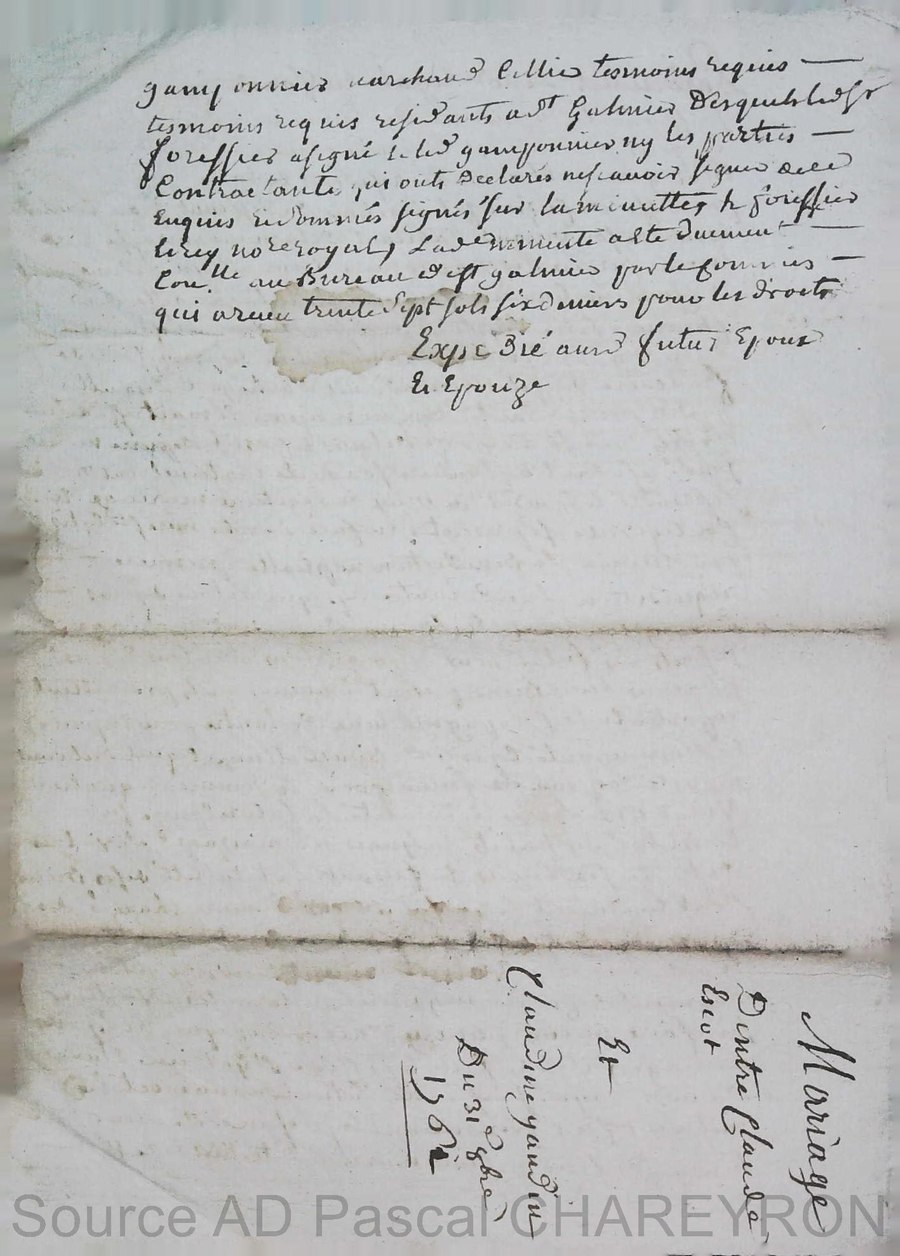 gamponnier marchand Cellier tesmoins requis
tesmoins requis residants a dt Galmier Desquels led sr
foressier a signé et led gamponnier ny les parties
Contractante qui onts Declarés ne scavoir signer de ce
Enquis et sommés signés sur la minutte, h foressier
et rey nore royal, Lad minutte a été duement
Con.lle au Bureau de st galmier par le commis
qui a receu trente sept sols six deniers pour les droits
Expedié aux d futur Epoux
Et Epouze
Marriage
Dentre Claude
Escot
Et
Claudine gaudin
Du 31e 8bre
Source AD Pascal CHAREYRON